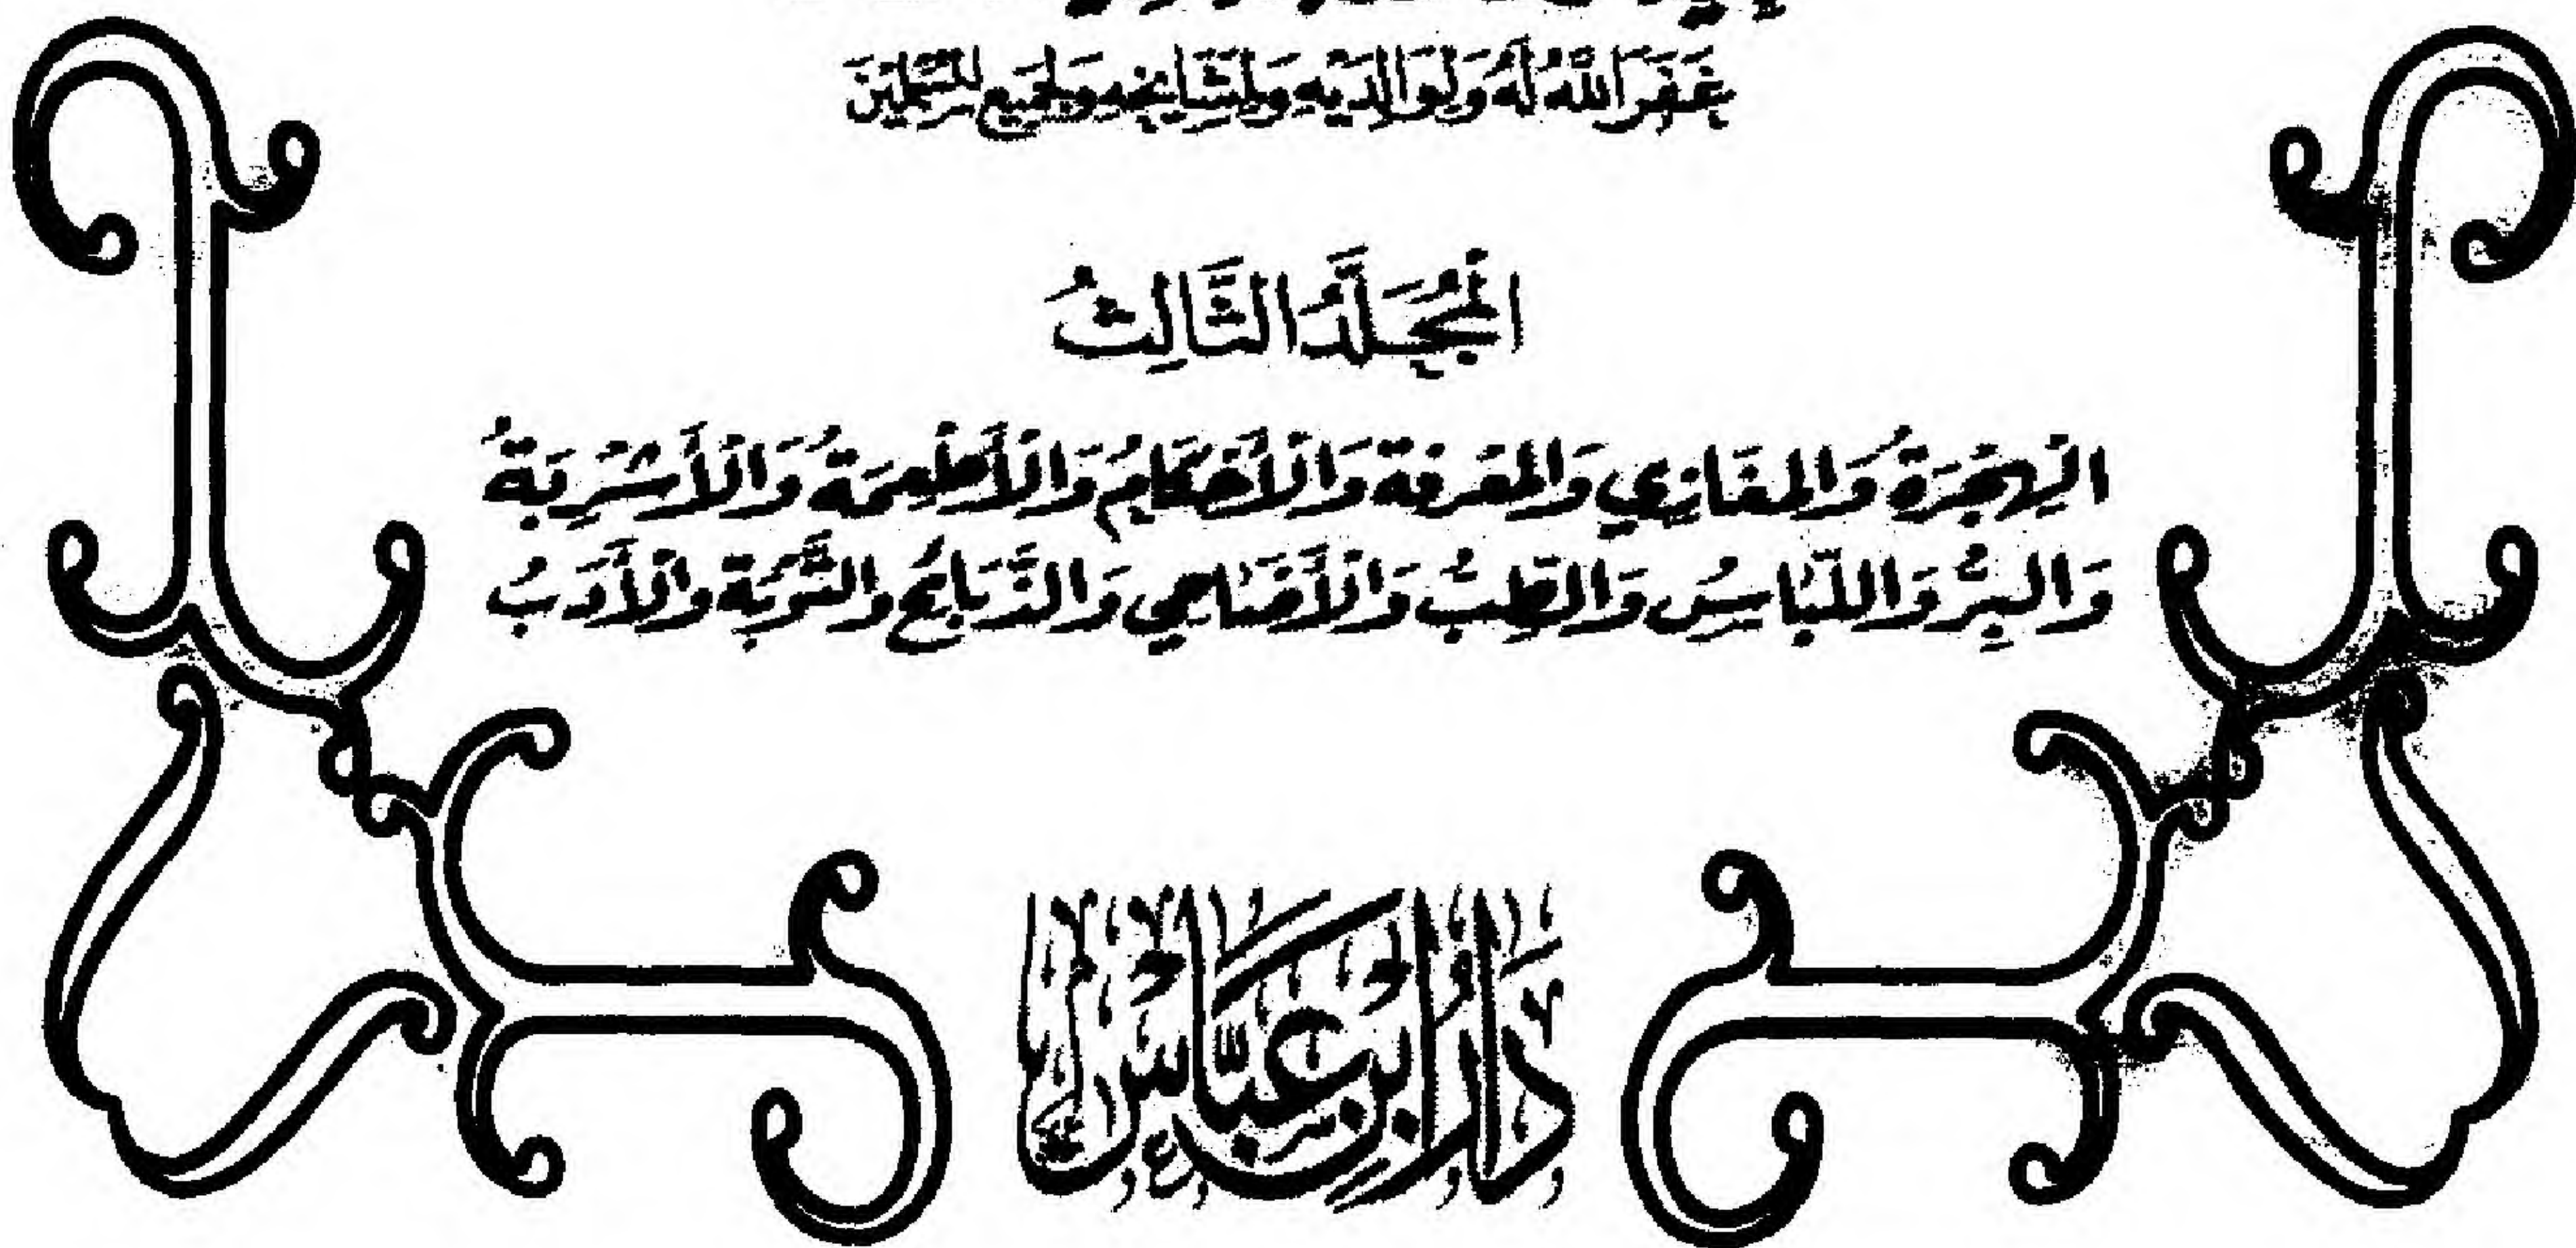 غَفَرَ اللهُ لَهُ وَلِوَالِدَيْهِ وَلِمَشَايِخِهِ وَلِجَمِيعِ المُسْلِمِينَ
المُجَلَّدُ الثَّالِثُ
الهِجْرَةُ وَالمَغَازِي وَالمَعْرِفَة وَالأَحْكَامُ وَالأَطْعِمَةُ وَالأَشْرِبَةُ
وَالبِرُّ وَاللِّبَاسُ وَالطِّبُّ وَالأَضَاحِي وَالذَّبَائِحُ والتَّوْبَة والأَدَبُ
دَارُ ابْنِ عَبَّاسٍ